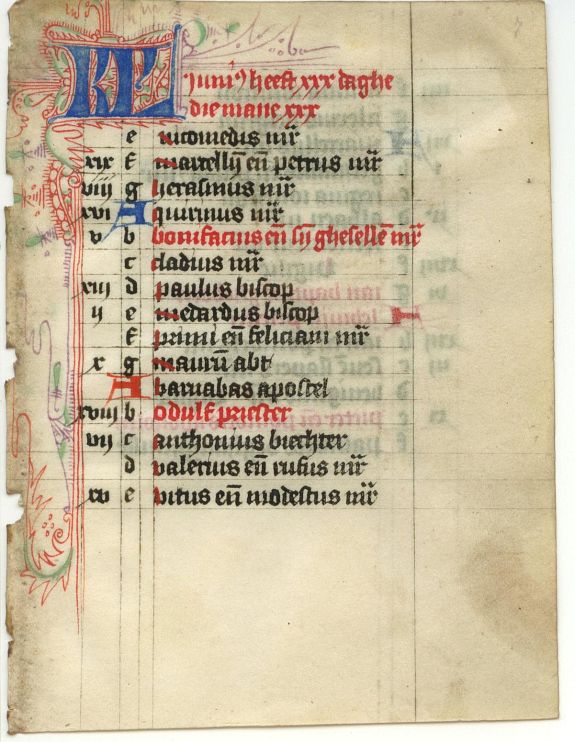 KL Juni' heeft xxx daghe
die mane xxx
e nicomedis mr̄
xix f marcelly en̄ petrus mr̄
viij g herasmus mr̄
xvi A quirinus mr̄
v b bonifacius en̄ sy ghesellē mr̄
c cladius mr̄
xiij d paulus biscop
ij e medardus biscop
f primi en̄ feliciani mr̄
x g maurū abt
A barnabas apostel
xviij b odulf priester
vij c anthonius biechter
d valerius en̄ rufus mr̄
xv e vitus en̄ modestus mr̄